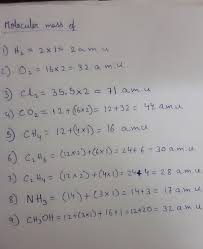 Molecular mass of
1) H₂ = 2x1 = 2 a.m.u
2) O₂ = 16x2 = 32 a.m.u.
3) Cl₂ = 35.5x2 = 71 a.m.u
4) CO₂ = 12+(16x2) = 12+32 = 44 a.m.u
5) CH₄ = 12+(4x1) = 16 a.m.u
6) C₂H₆ = (12x2)+(6x1) = 24+6 = 30 a.m.u
7) C₂H₄ = (12x2)+(4x1) = 24+4 = 28 a.m.u
8) NH₃ = (14)+(3x1) = 14+3 = 17 a.m.u
9) CH₃OH = 12+(3x1)+16+1 = 12+20 = 32 a.m.u